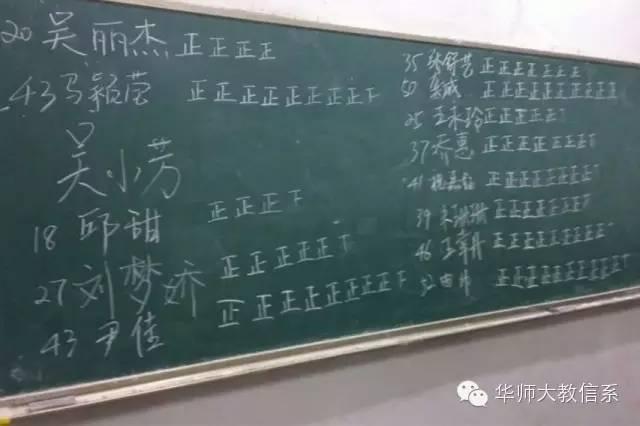 20 吴丽杰 正正正正
43 马颖莹 正正正正正正正正下
吴小芳 正正正下
18 邱甜
27 刘梦娇 正正正正正
43 尹佳 正正正正正正正正
35 张舒艺 正正正正正正正
50 吴威 正正正正正正正正正正
25 王永玲 正正正正正
37 乔惠 正正正正正正正
41 正正正正正正正正
39 正正正正正正正
46 王翠丹 正正正正正正正正正
正正正正正正正正正正
华师大教信系